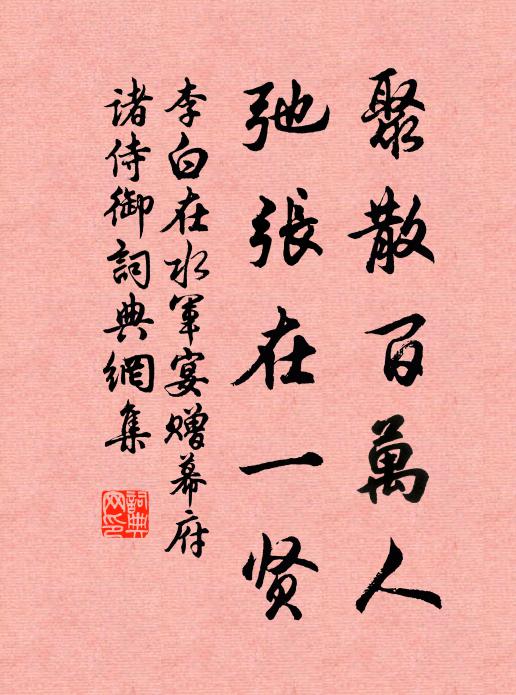 聚散百萬人
弛張在一贤
李白在水軍宴赠幕府
諸侍御詞典網集
詞典
网印